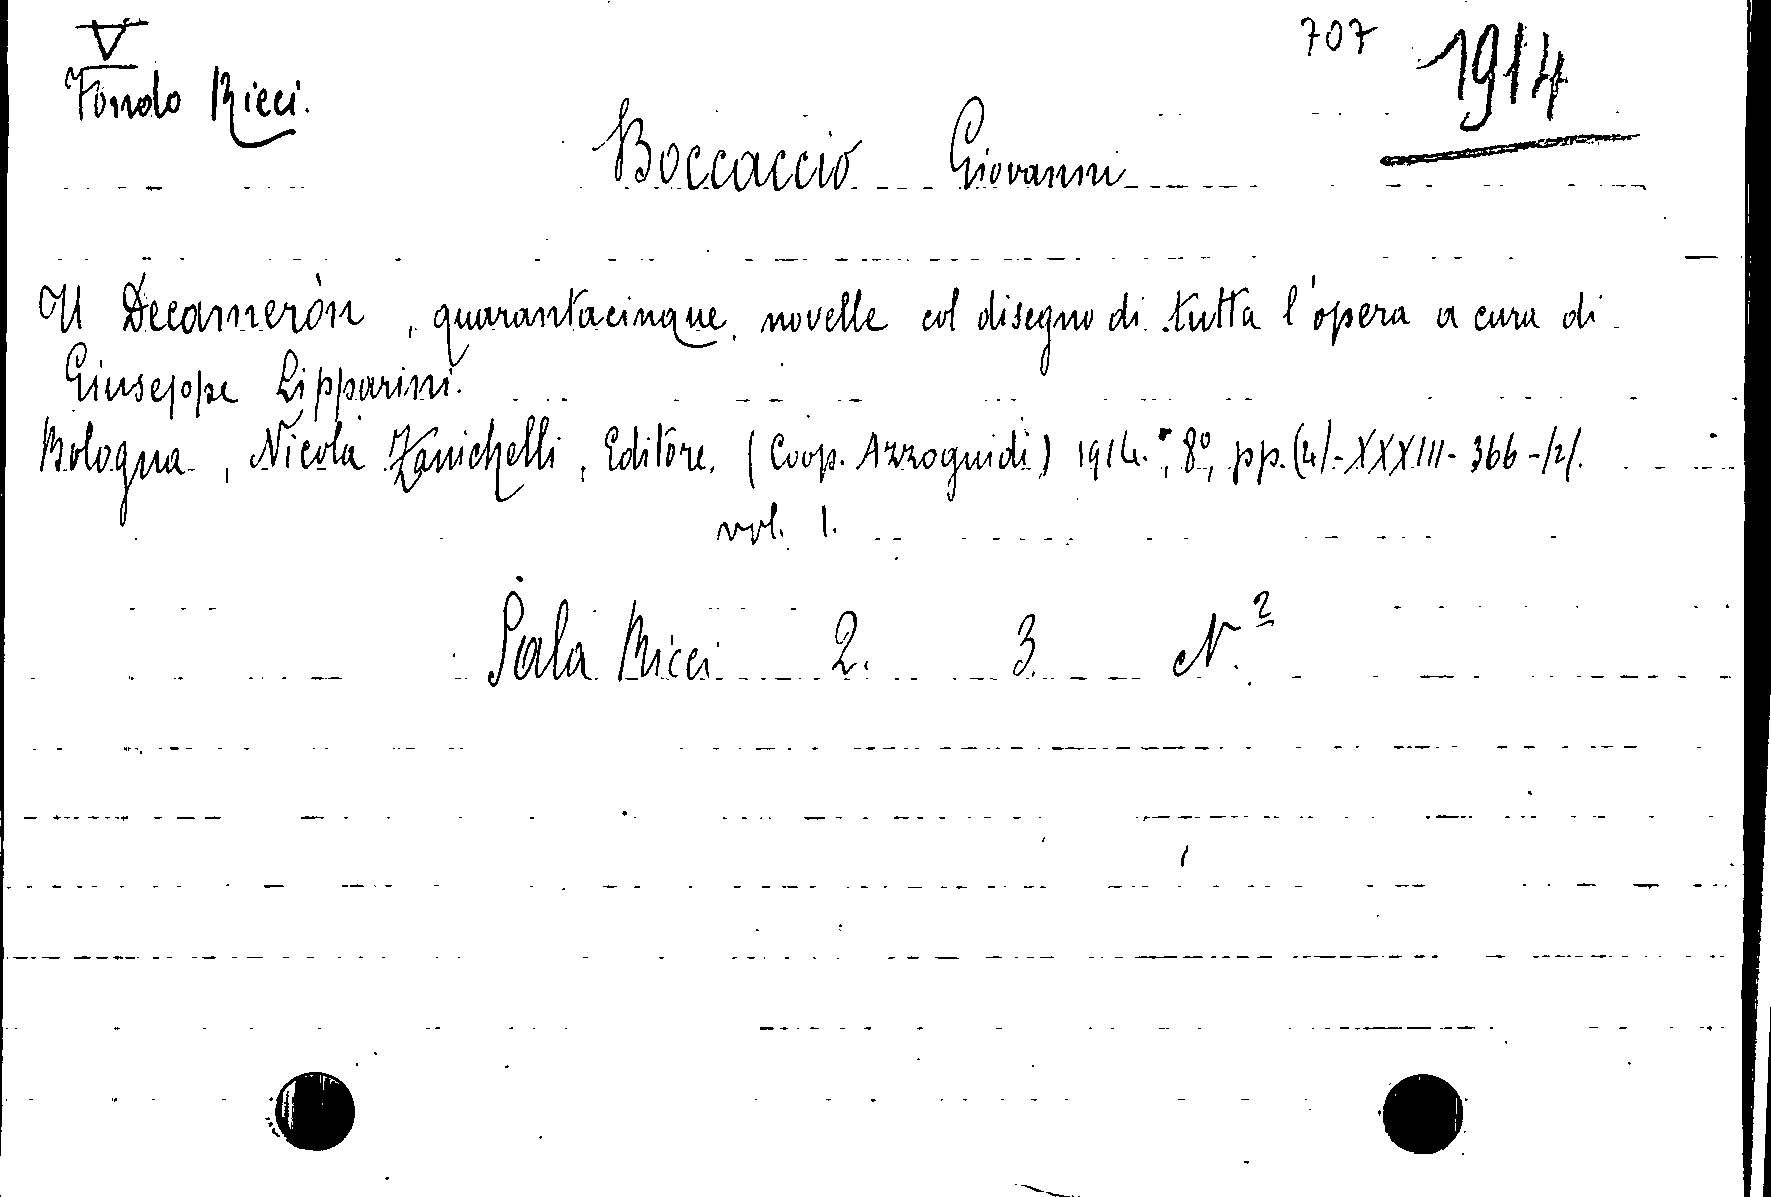 V
Fondo Ricci.
707 1914
Boccaccio Giovanni
Il Decameròn, quarantacinque novelle col disegno di tutta l'opera a cura di
Giuseppe Lipparini.
Bologna, Nicola Zanichelli, Editore, (Coop. Azzoguidi) 1914.; 8º, pp. (4)-XXXIII-366-(2).
vol. 1.
Sala Ricci 2. 3. N. 2